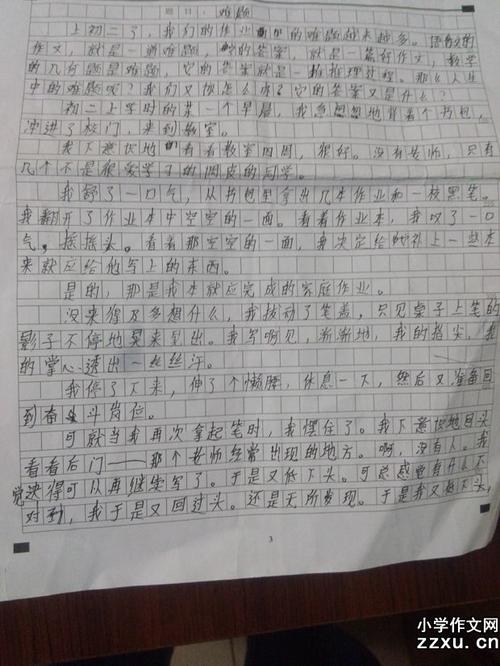 题目：难题
上初二了，我们的作业里的难题越来越多。语文的
作文，就是一道难题，的答案，就是一篇好作文，数学
的几何题是难题，它的答案就是一推理过程。那么人生
中的难题呢？我们又该怎么办？它的答案又是什么？
初二上学时的某一个早晨，我急忽忽地背着个书包，
冲进了校门，来到教室。
我下意识地看看教室四周，很好。没有老师，只有
几个不是很爱学习的调皮的同学。
我舒了一口气，从书包里拿出几本作业和一枝黑笔。
我翻开了作业本中空空的一面。看着作业本，我叹了一口
气，摇摇头。看着那空空的一面，我决定给补上一些本
来就应给他写上的东西。
是的，那是我本就应完成的家庭作业。
没来得及多想什么，我拔动了笔盖，只见桌子上笔的
影子不停地晃来晃出。我写啊见，渐渐地，我的指尖，我
的掌心透出一丝丝汗。
我停了下来，伸了个懒腰，休息一下，然后又准备回
到奋斗岗位。
可就当我再次拿起笔时，我愣住了。我下意识地回头
看看后门——那个教师经常出现的地方。啊，没有人。我
觉得可以再继续写了。于是又低下头。可总感觉有什么不
对到，我于是又回过头。还是无所发现。于是我又低下头，
3
小学作文网
zzxu.cn